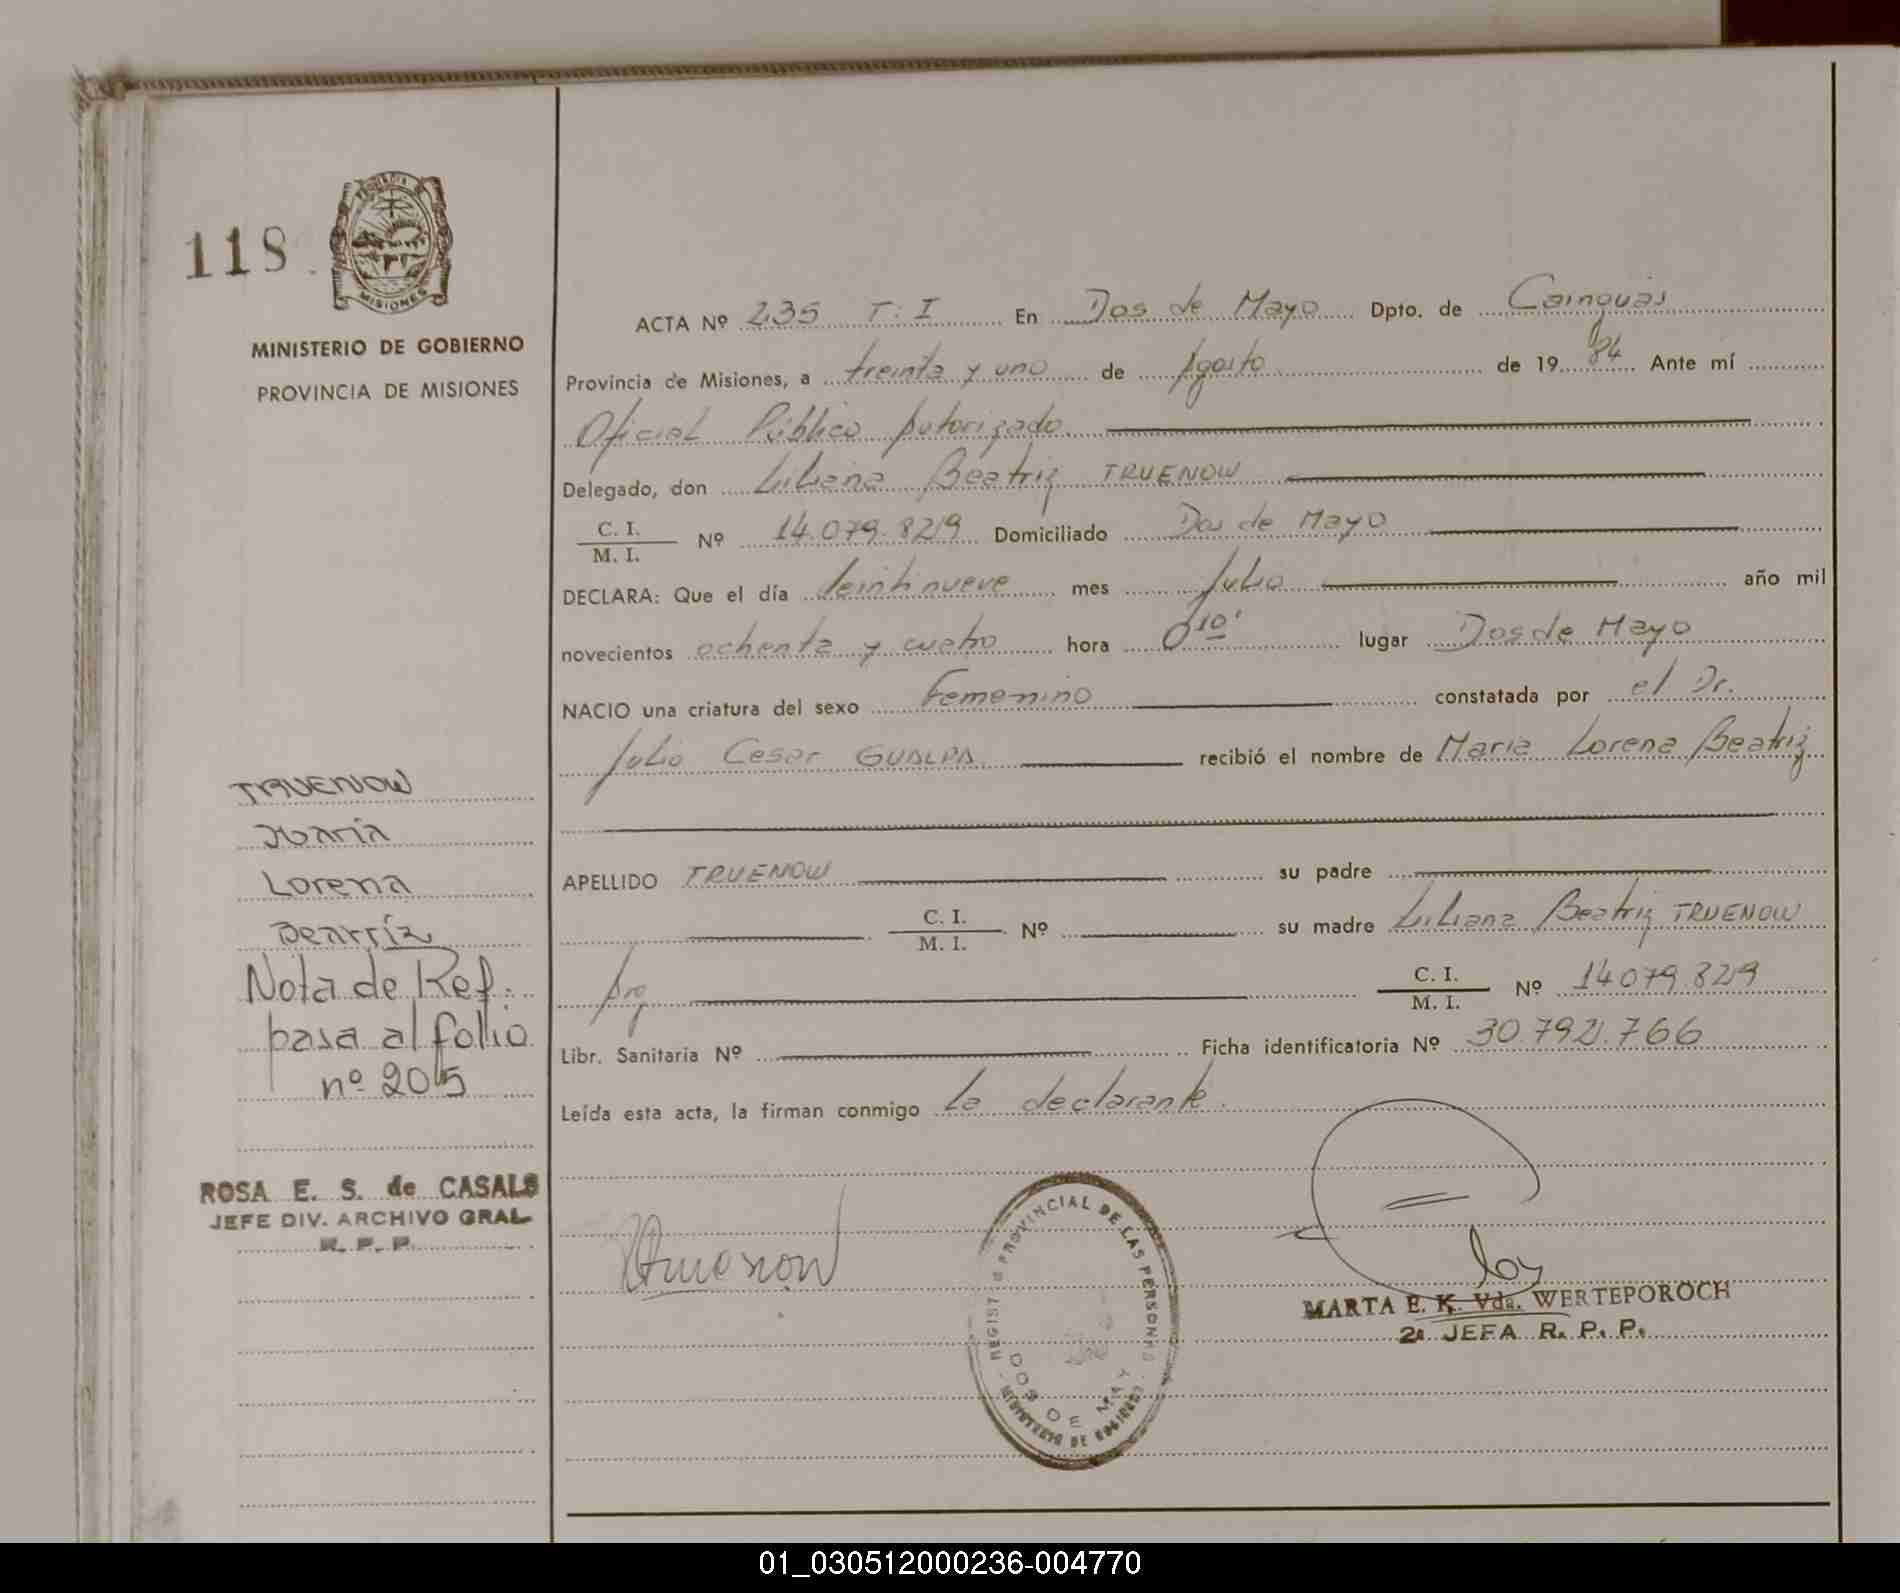 118
PROVINCIA DE
MISIONES
MINISTERIO DE GOBIERNO
PROVINCIA DE MISIONES
TRUENOW
María
Lorena
Beatríz
Nota de Ref.
pasa al folio
nº 205
ROSA E. S. de CASALS
JEFE DIV. ARCHIVO GRAL.
R. P. P.
ACTA Nº 235 T: I En Dos de Mayo Dpto. de Cainguas
Provincia de Misiones, a treinta y uno de Agosto de 1984 Ante mí
Oficial Público Autorizado
Delegado, don Liliana Beatriz TRUENOW
C. I. / M. I. Nº 14.079.829 Domiciliado Dos de Mayo
DECLARA: Que el día veintinueve mes Julio año mil
novecientos ochenta y cuatro hora 0 10' lugar Dos de Mayo
NACIO una criatura del sexo Femenino constatada por el Dr.
Julio Cesar GUALPA recibió el nombre de Maria Lorena Beatriz
APELLIDO TRUENOW su padre
C. I. / M. I. Nº su madre Liliana Beatriz TRUENOW
Arg. C. I. / M. I. Nº 14079829
Libr. Sanitaria Nº Ficha identificatoria Nº 30.792.766
Leída esta acta, la firman conmigo La declarante.
Truenow
REGISTRO PROVINCIAL DE LAS PERSONAS
DOS DE MAYO
MINISTERIO DE GOBIERNO
MARTA E. K. Vda. WERTEPOROCH
2a JEFA R. P. P.
01_030512000236-004770